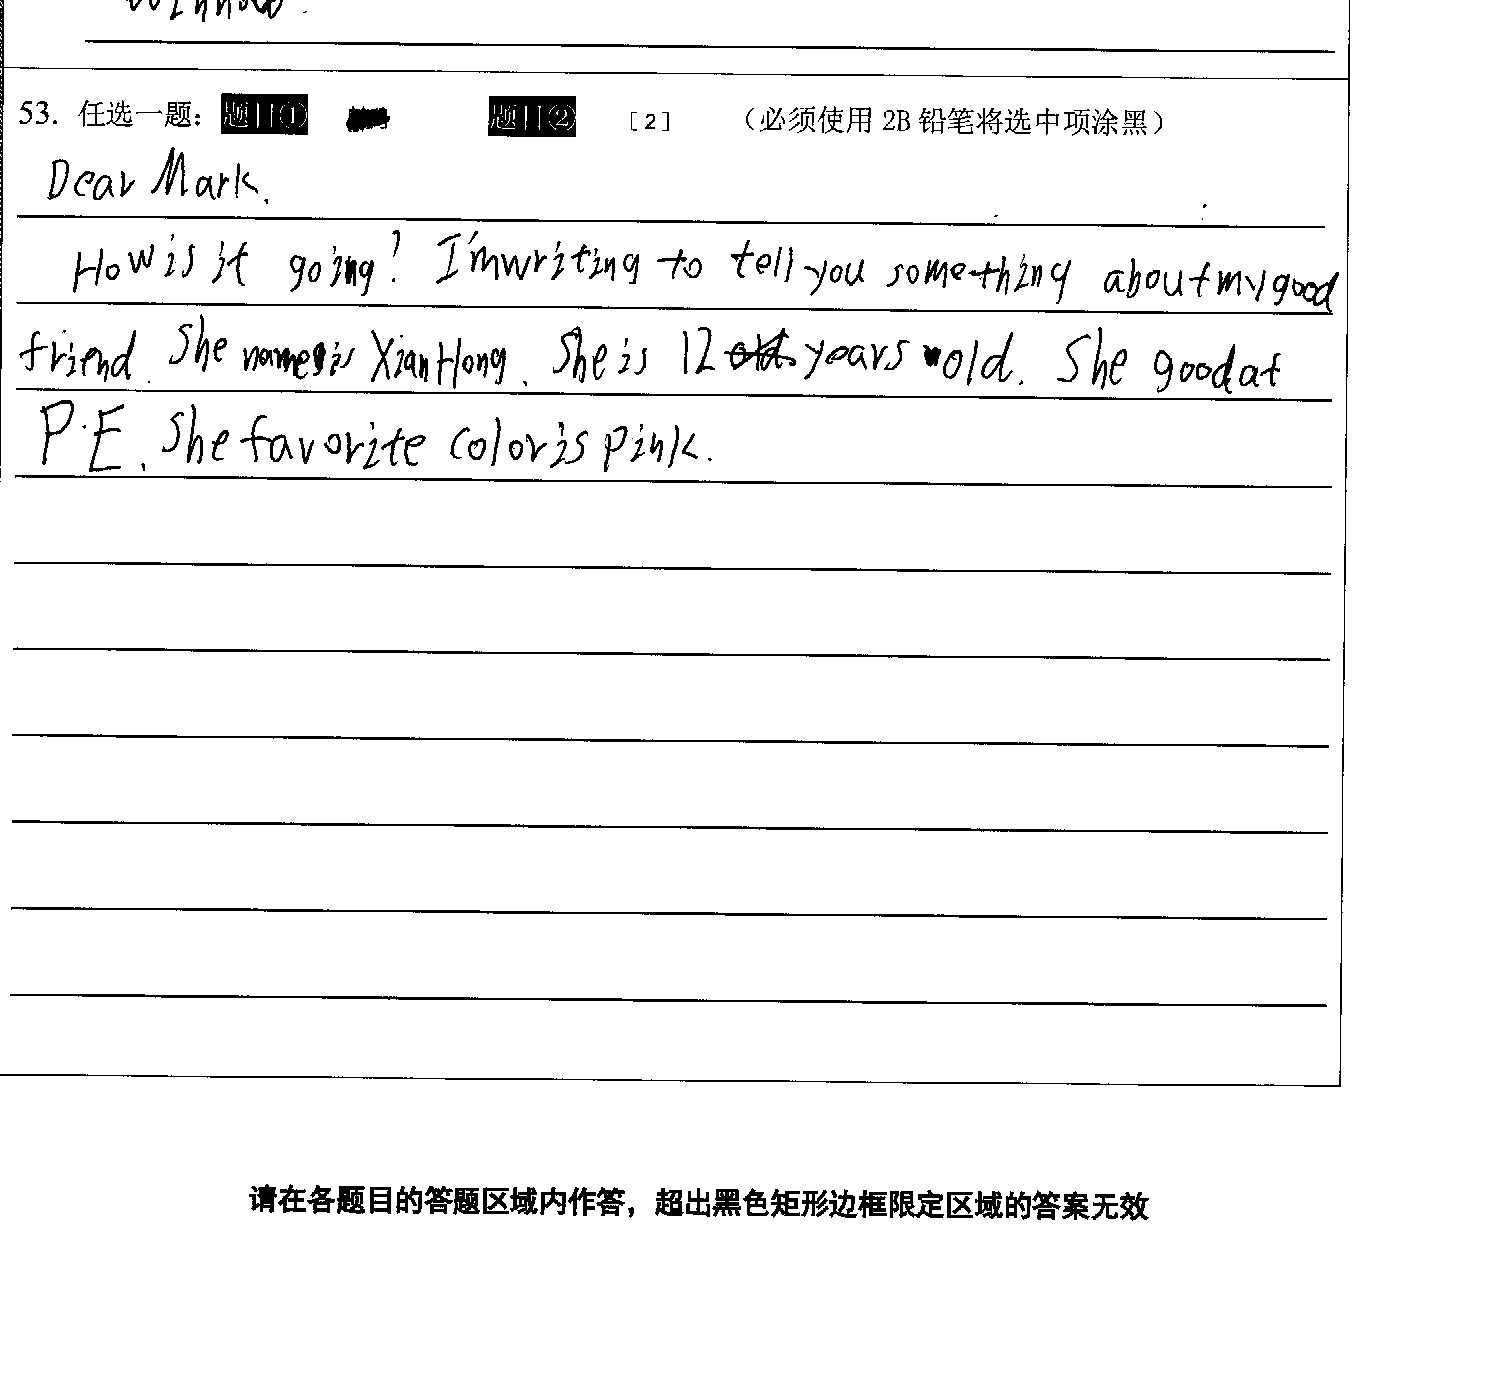 53. 任选一题： 题目① 题目② [2] （必须使用 2B 铅笔将选中项涂黑）
Dear Mark.
How is it going? I'm writing to tell you something about my good
friend. She names is XianHong. She is 12 years old. She good at
P.E. She favorite color is pink.
请在各题目的答题区域内作答，超出黑色矩形边框限定区域的答案无效